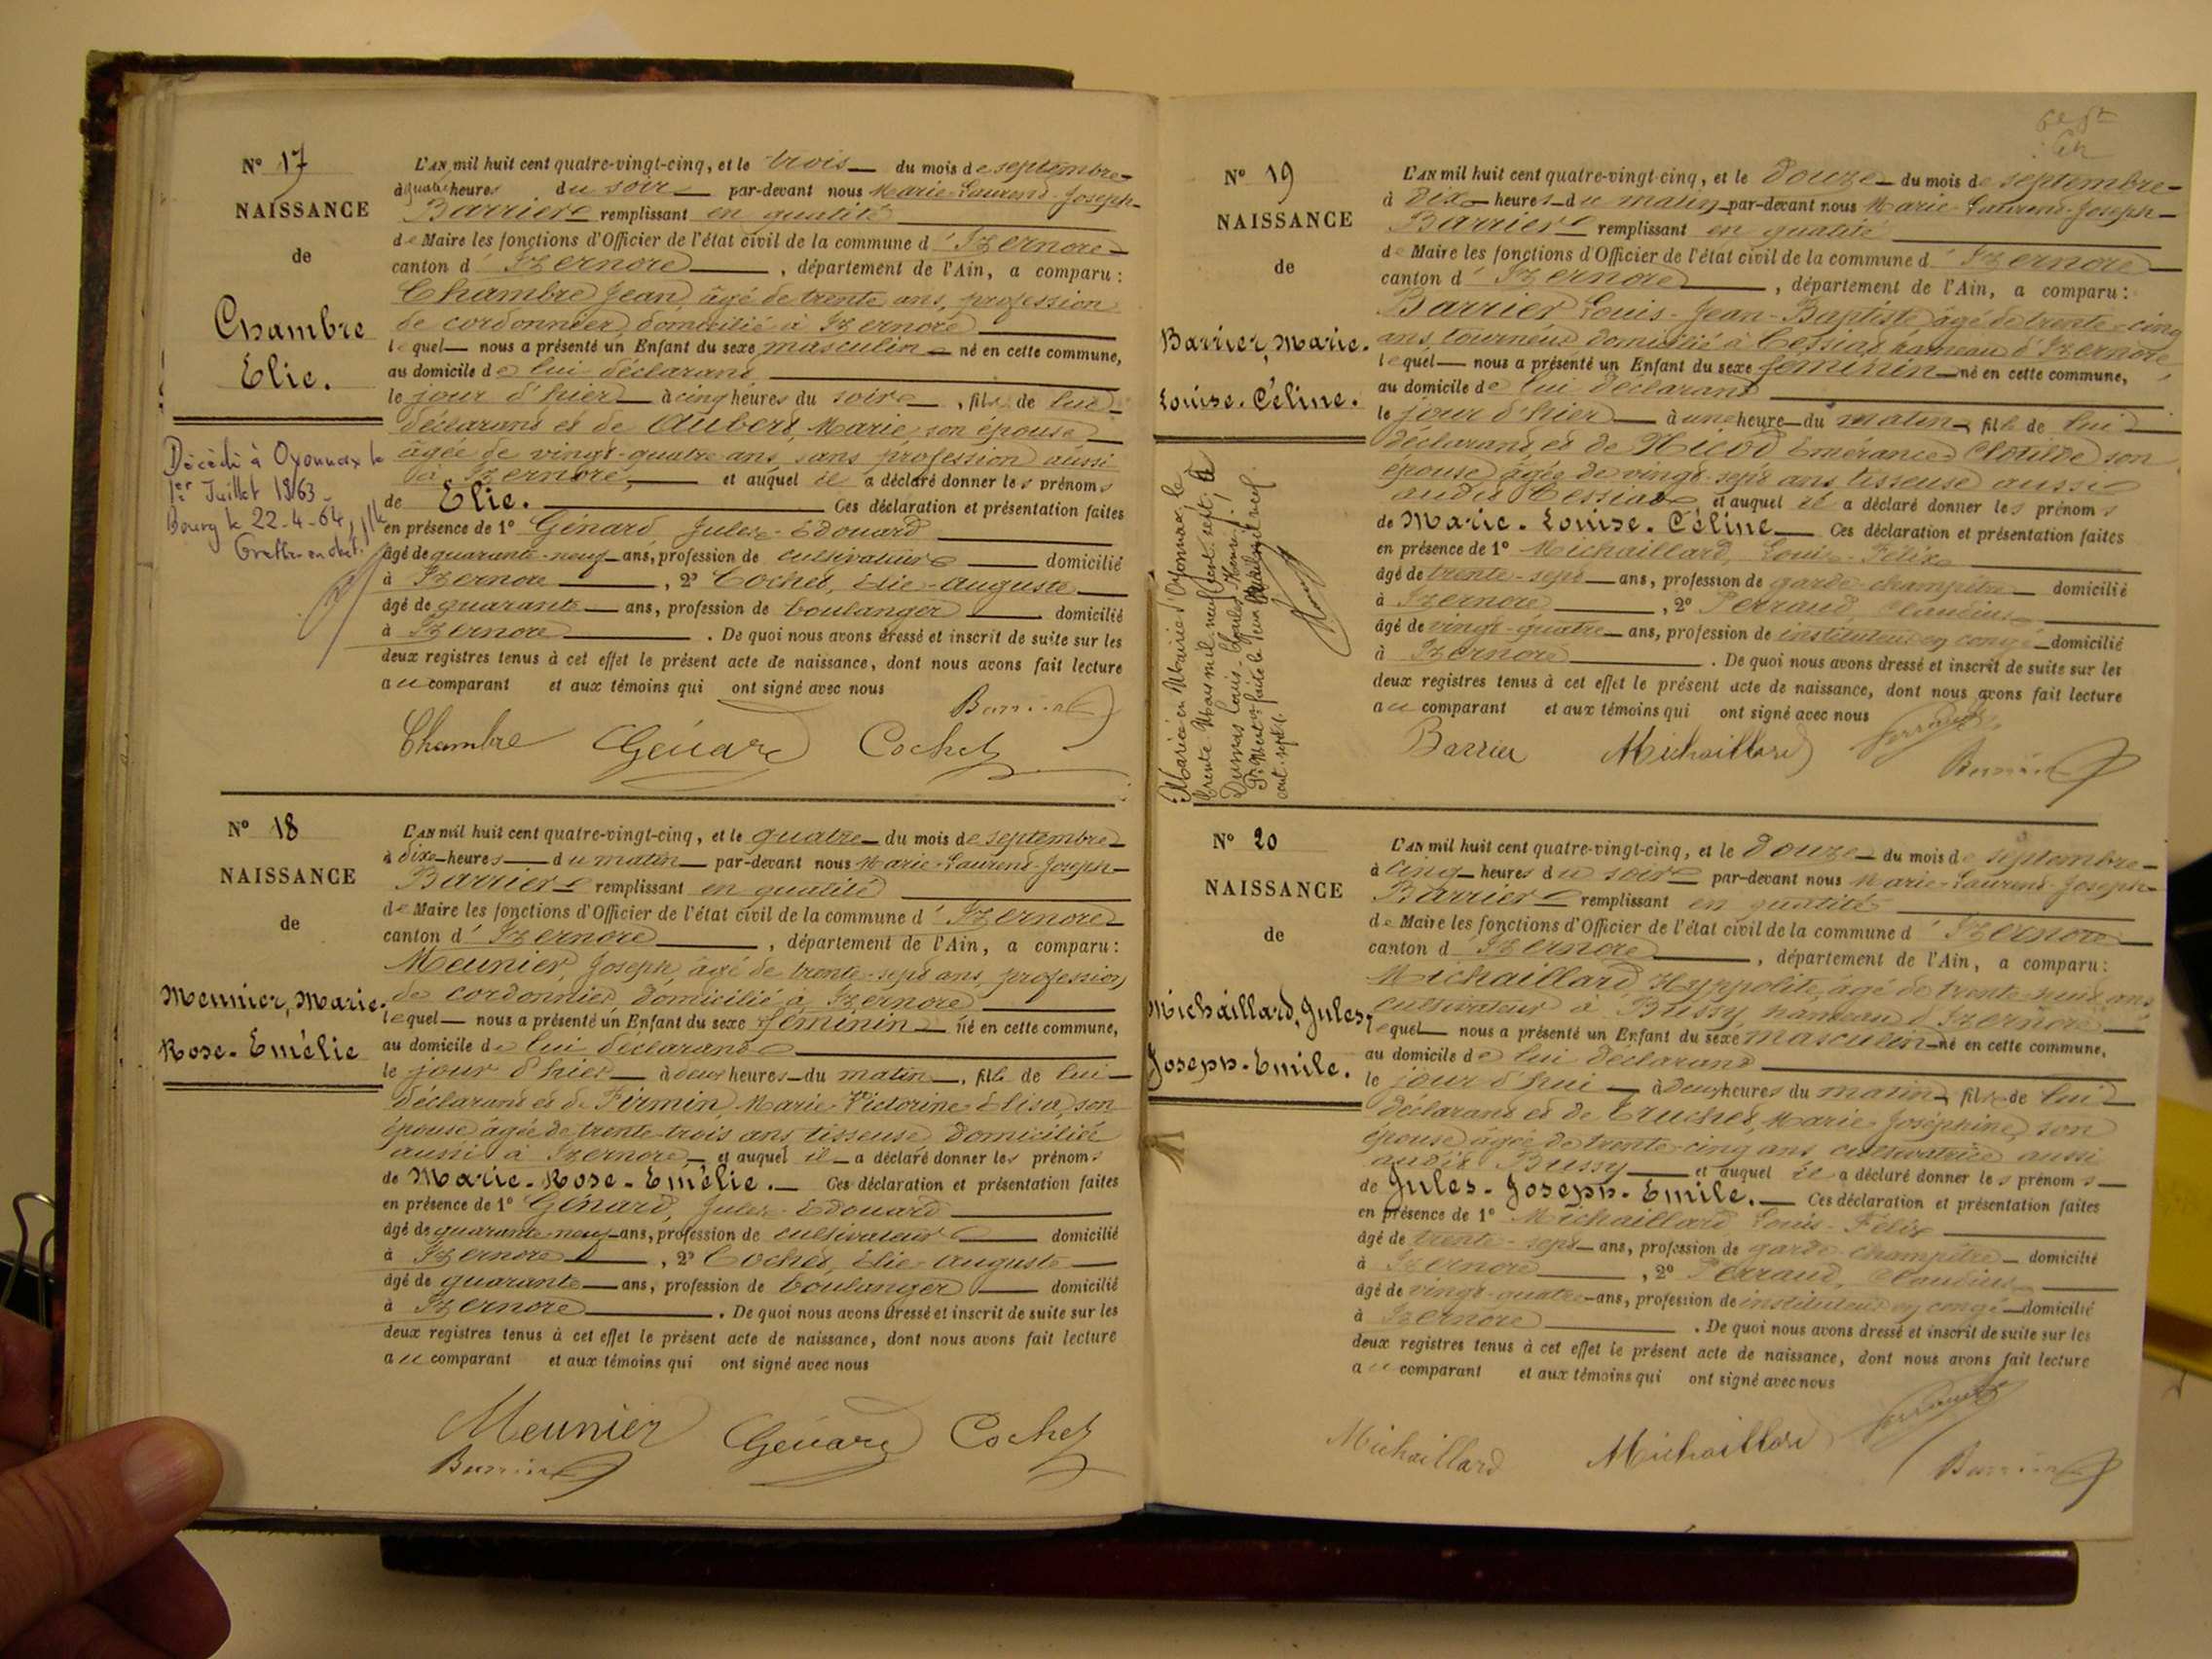 N° 17
NAISSANCE
de
Chambre
Elie.
Décédé à Oyonnax le
1er Juillet 1963
Bourg le 22-4-64
L'AN mil huit cent quatre-vingt-cinq, et le trois du mois de septembre
à quatre heures du soir par-devant nous Marie-Laurent-Joseph
Barrier remplissant en qualité
de Maire les fonctions d'Officier de l'état civil de la commune d'Izernore
canton d'Izernore, département de l'Ain, a comparu :
Chambre Jean âgé de trente ans, profession
de cordonnier, domicilié à Izernore
lequel nous a présenté un Enfant du sexe masculin né en cette commune,
au domicile de lui déclarant
le jour d'hier à cinq heures du soir, fils de lui
déclarant et de Aubert, Marie son épouse
âgée de vingt-quatre ans, sans profession aussi
à Izernore, et auquel il a déclaré donner les prénoms
de Elie. Ces déclaration et présentation faites
en présence de 1° Génard, Jules-Edouard
âgé de quarante-neuf ans, profession de cultivateur domicilié
à Izernore, 2° Cochet, Elie-Auguste
âgé de quarante ans, profession de boulanger domicilié
à Izernore. De quoi nous avons dressé et inscrit de suite sur les
deux registres tenus à cet effet le présent acte de naissance, dont nous avons fait lecture
au comparant et aux témoins qui ont signé avec nous
Barrier
Chambre Génard Cochet
N° 18
NAISSANCE
de
Meunier, Marie-
Rose-Emélie
L'AN mil huit cent quatre-vingt-cinq, et le quatre du mois de septembre
à dix heures du matin par-devant nous Marie-Laurent-Joseph
Barrier remplissant en qualité
de Maire les fonctions d'Officier de l'état civil de la commune d'Izernore
canton d'Izernore, département de l'Ain, a comparu :
Meunier, Joseph, âgé de trente-sept ans, profession
de cordonnier, domicilié à Izernore
lequel nous a présenté un Enfant du sexe féminin né en cette commune,
au domicile de lui déclarant
le jour d'hier à deux heures du matin, fille de lui
déclarant et de Firmin, Marie-Victorine-Elisa, son
épouse âgée de trente-trois ans, tisseuse domiciliée
aussi à Izernore et auquel il a déclaré donner les prénoms
de Marie-Rose-Emélie. Ces déclaration et présentation faites
en présence de 1° Génard, Jules-Edouard
âgé de quarante-neuf ans, profession de cultivateur domicilié
à Izernore, 2° Cochet, Elie-Auguste
âgé de quarante ans, profession de boulanger domicilié
à Izernore. De quoi nous avons dressé et inscrit de suite sur les
deux registres tenus à cet effet le présent acte de naissance, dont nous avons fait lecture
au comparant et aux témoins qui ont signé avec nous
Meunier Génard Cochet
Barrier
N° 19
NAISSANCE
de
Barrier, Marie-
Louise-Céline.
Mariée en Mairie d'Oyonnax, le
trente Mars mil neuf cent sept, à
Dumas Louis-Charles-Henri
cent sept.
L'AN mil huit cent quatre-vingt-cinq, et le douze du mois de septembre
à dix heures du matin par-devant nous Marie-Laurent-Joseph
Barrier remplissant en qualité
de Maire les fonctions d'Officier de l'état civil de la commune d'Izernore
canton d'Izernore, département de l'Ain, a comparu :
Barrier Louis-Jean-Baptiste âgé de trente-cinq
ans, tourneur domicilié à Cessiat hameau d'Izernore,
lequel nous a présenté un Enfant du sexe féminin né en cette commune,
au domicile de lui déclarant
le jour d'hier à une heure du matin, fille de lui
déclarant et de Hugod Emérance Clotilde son
épouse âgée de vingt-sept ans tisseuse aussi
audit Cessiat et auquel il a déclaré donner les prénoms
de Marie-Louise-Céline Ces déclaration et présentation faites
en présence de 1° Michaillard, Louis-Félix
âgé de trente-sept ans, profession de garde-champêtre domicilié
à Izernore, 2° Perraud, Claudius
âgé de vingt-quatre ans, profession de instituteur en congé domicilié
à Izernore. De quoi nous avons dressé et inscrit de suite sur les
deux registres tenus à cet effet le présent acte de naissance, dont nous avons fait lecture
au comparant et aux témoins qui ont signé avec nous
Barrier Michaillard Perraud
Barrier
N° 20
NAISSANCE
de
Michaillard, Jules,
Joseph-Emile.
L'AN mil huit cent quatre-vingt-cinq, et le douze du mois de septembre
à cinq heures du soir par-devant nous Marie-Laurent-Joseph
Barrier remplissant en qualité
de Maire les fonctions d'Officier de l'état civil de la commune d'Izernore
canton d'Izernore, département de l'Ain, a comparu :
Michaillard Hyppolite, âgé de trente-neuf ans
cultivateur à Bussy hameau d'Izernore
lequel nous a présenté un Enfant du sexe masculin né en cette commune,
au domicile de lui déclarant
le jour d'hui à deux heures du matin, fils de lui
déclarant et de Truchet, Marie Joséphine, son
épouse âgée de trente-cinq ans cultivatrice aussi
audit Bussy et auquel il a déclaré donner les prénoms
de Jules-Joseph-Emile. Ces déclaration et présentation faites
en présence de 1° Michaillard Louis-Félix
âgé de trente-sept ans, profession de garde champêtre domicilié
à Izernore, 2° Perraud, Claudius
âgé de vingt-quatre ans, profession de instituteur en congé domicilié
à Izernore. De quoi nous avons dressé et inscrit de suite sur les
deux registres tenus à cet effet le présent acte de naissance, dont nous avons fait lecture
au comparant et aux témoins qui ont signé avec nous
Michaillard Michaillard Perraud
Barrier